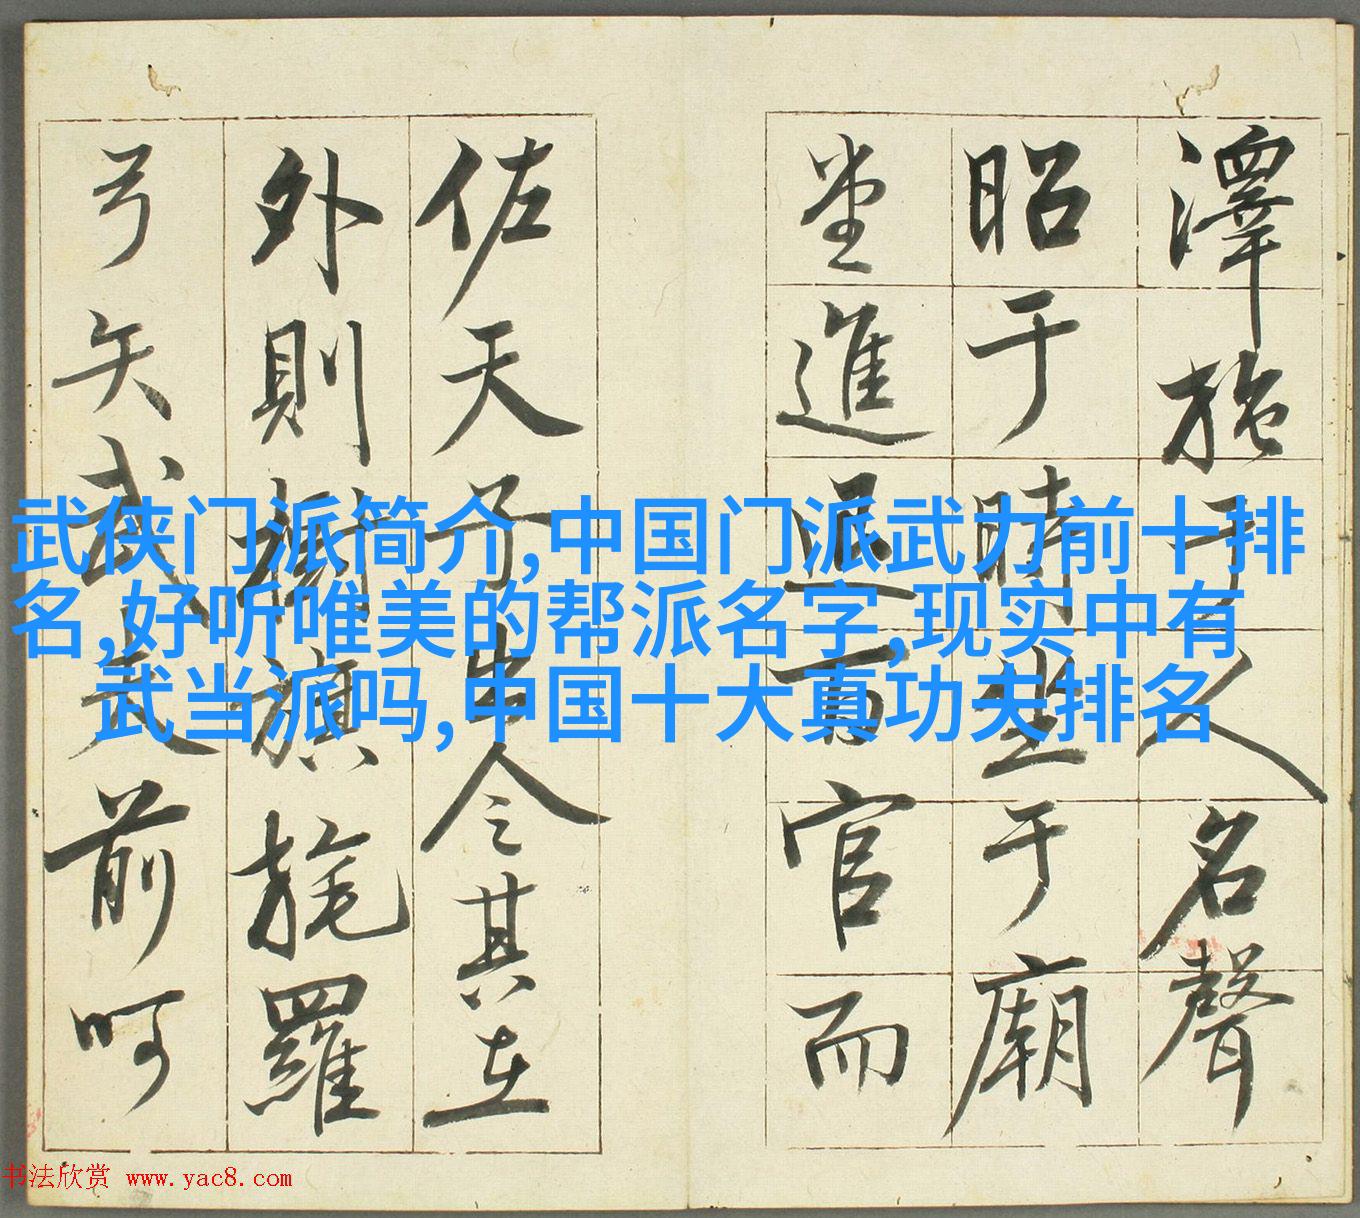 澤施于人名聲
昭于時坐于廟
堂進退百官而
佐天子出令其在
外則樹旗旄羅
弓矢武夫前呵
武侠门派简介,中国门派武力前十排
名,好听唯美的帮派名字,现实中有
武当派吗,中国十大真功夫排名
书法欣赏 www.yac8.com